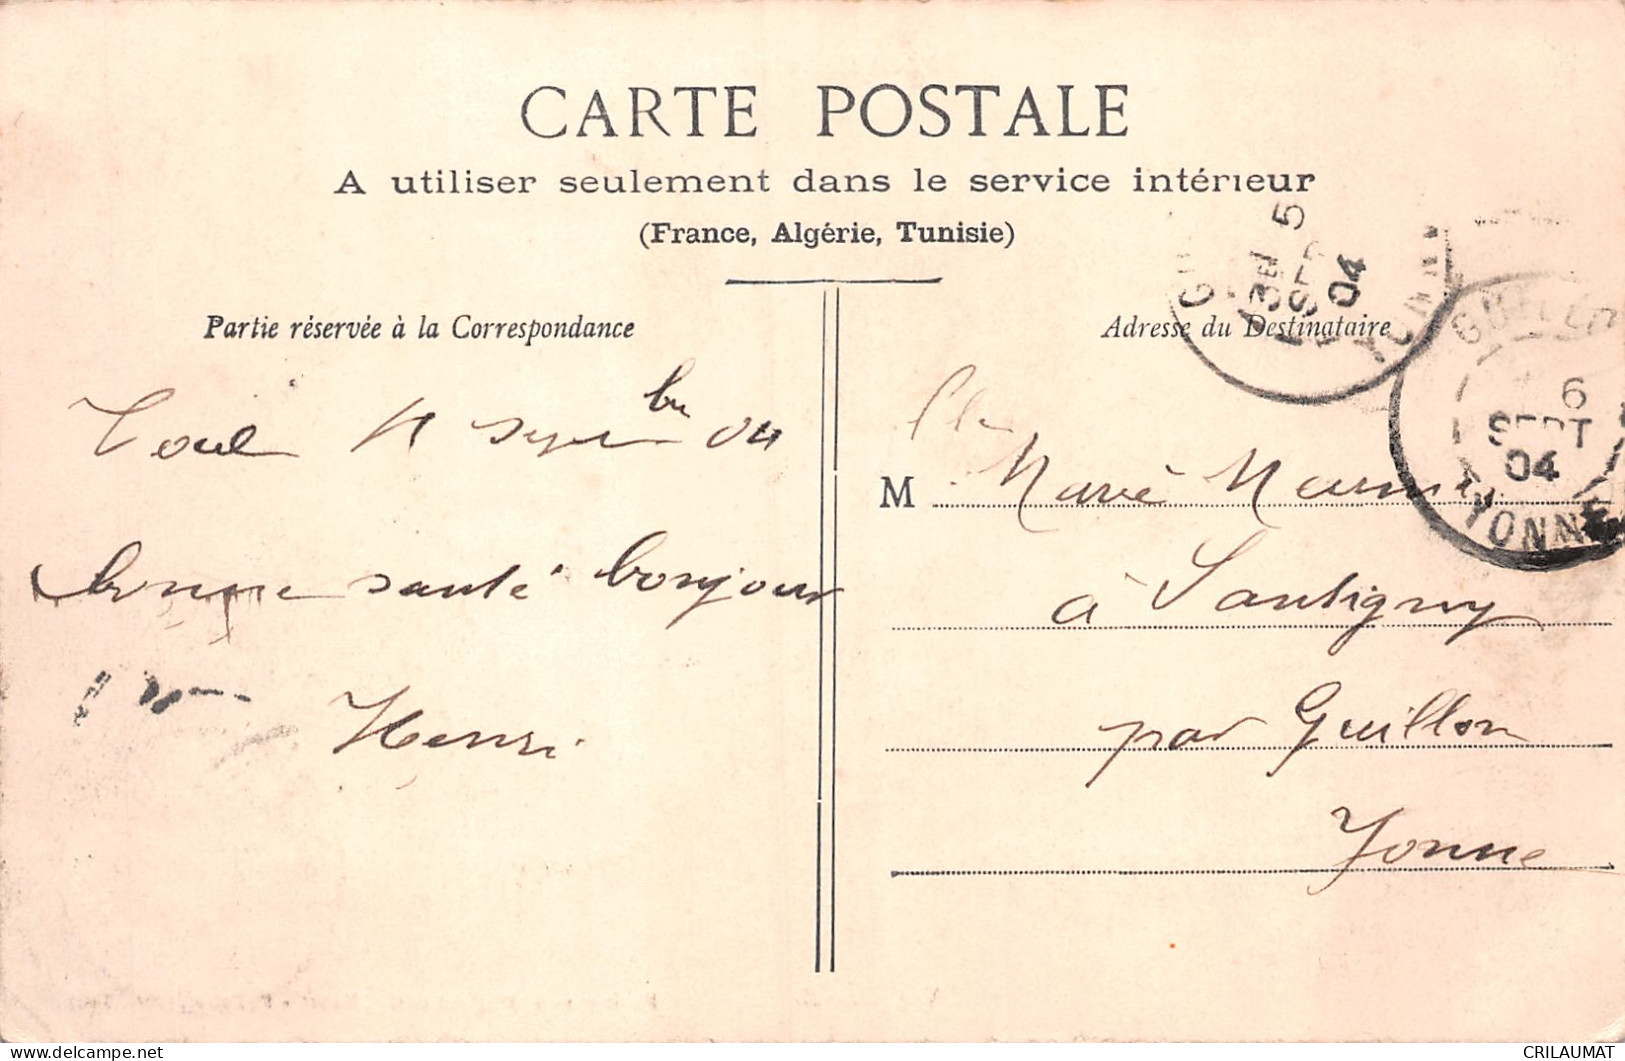 CARTE POSTALE
A utiliser seulement dans le service intérieur
(France, Algérie, Tunisie)
Partie réservée à la Correspondance
Toul 4 bre 04
bonne santé bonjour
Henri
Adresse du Destinataire
M lle
Marie
à Santigny
par Guillon
Yonne
5
SEPT
04
YONNE
GUILLON
6
SEPT
04
YONNE
CRILAUMAT